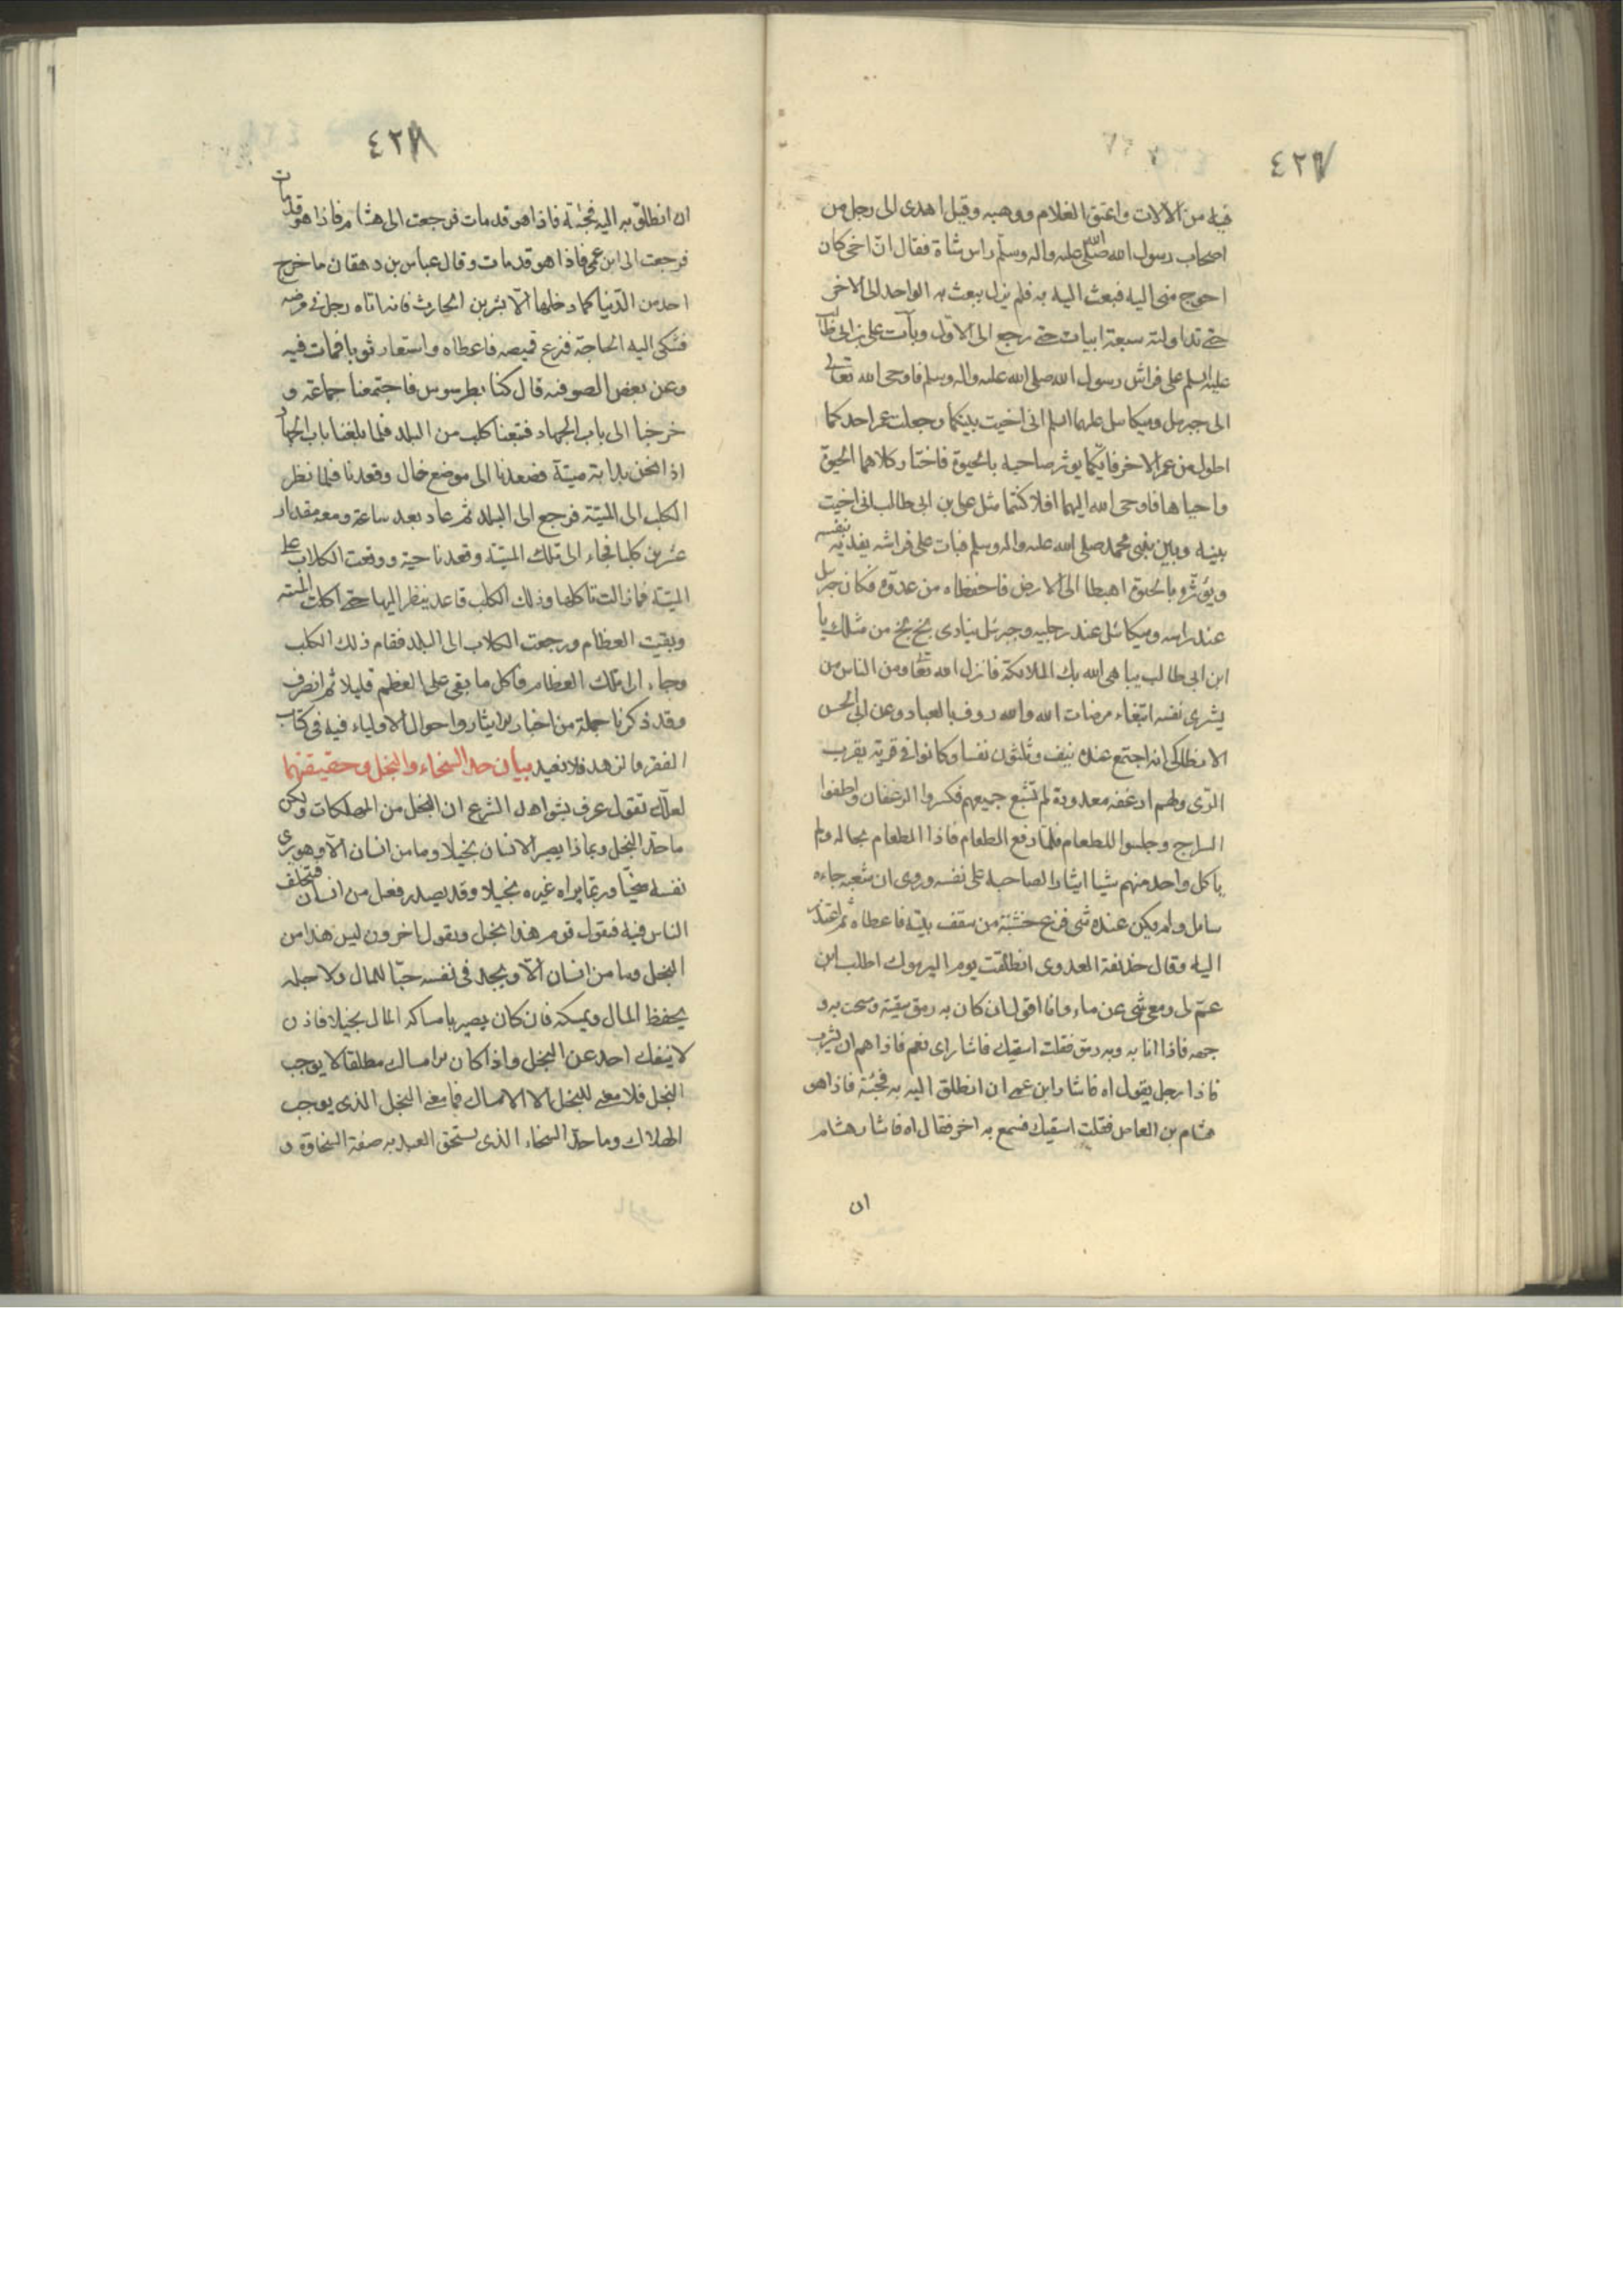 ٤٢٧
فيه من الآلات واعتق الغلام ووهبه وقيل اهدى الى رجل من
اصحاب رسول الله صلى الله عليه واله وسلم راس شاة فقال ان اخى كان
احوج منى اليه فبعث اليه به فلم يزل يبعث به الواحد الى الاخر
حتى تداولته سبعة ابيات حتى رجع الى الاول وبات على بن ابى طالب
عليه السلم على فراش رسول الله صلى الله عليه واله وسلم فاوحى الله تعالى
الى جبرئيل وميكائيل عليهما السلم انى اخيت بينكما وجعلت عمر احدكما
اطول من عمر الاخر فايكما يوثر صاحبه بالحيوة فاختار كلاهما الحيوة
واحباها فاوحى الله اليهما افلا كنتما مثل على بن ابى طالب انى اخيت
بينه وبين نبيى محمد صلى الله عليه واله وسلم فبات على فراشه يفديه بنفسه
ويؤثره بالحيوة اهبطا الى الارض فاحفظاه من عدوه فكان جبرئيل
عند راسه وميكائيل عند رجليه وجبرئيل ينادى بخ بخ من مثلك يا
ابن ابى طالب يباهى الله بك الملائكة فانزل الله تعا ومن الناس من
يشرى نفسه ابتغاء مرضات الله والله رءوف بالعباد وعن ابى الحسن
الانطاكى انه اجتمع عنده نيف وثلثون نفسا وكانوا فى قرية بقرب
الرى ولهم ارغفة معدودة لم تشبع جميعهم فكسروا الرغفان واطفوا
السراج وجلسوا للطعام فلما رفع الطعام فاذا الطعام بحاله ولم
ياكل واحد منهم شيا ايثارا لصاحبه على نفسه وروى ان شعبه جاءه
سائل ولم يكن عنده شى فنزع خشبة من سقف بيته فاعطاه ثم اعتذر
اليه وقال حذيفة العدوى انطلقت يوم اليرموك اطلب ابن
عم لى ومعى شى من ماء وانا اقول ان كان به رمق سقيته ومسحت به و
جهه فاذا انا به وبه رمق فقلت اسقيك فاشار اى نعم فاذا هم ان يشرب
فاذا رجل يقول اه فاشار ابن عمى ان انطلق اليه به فجئته فاذا هو
هشام بن العاص فقلت اسقيك فسمع به اخر فقال اه فاشار هشام
ان
٤٢٨
ان انطلق به اليه فجئته فاذا هو قد مات فرجعت الى هشام فاذا هو قد مات
فرجعت الى ابن عمى فاذا هو قد مات وقال عباس بن دهقان ما خرج
احد من الدنيا كما دخلها الا بشر بن الحارث فانه اتاه رجل فى مرضه
فشكى اليه الحاجة فنزع قميصه فاعطاه واستعار ثوبا فمات فيه
وعن بعض الصوفيه قال كنا بطرسوس فاجتمعنا جماعة و
خرجنا الى باب الجهاد فتبعنا كلب من البلد فلما بلغنا باب الجهاد
اذا نحن بدابة ميتة فصعدنا الى موضع خال وقعدنا فلما نظر
الكلب الى الميتة فرجع الى البلد ثم عاد بعد ساعة ومعه مقدار
عشرين كلبا فجاء الى تلك الميتة وقعد ناحية ووقعت الكلاب على
الميتة فما زالت تاكلها وذلك الكلب قاعد ينظر اليها حتى اكلت الميتة
وبقيت العظام ورجعت الكلاب الى البلد فقام ذلك الكلب
وجاء الى تلك العظام فاكل ما بقى على العظم قليلا ثم انصرف
وقد ذكرنا جملة من اخبار الايثار واحوال الاولياء فيه فى كتاب
الفقر والزهد فلا نعيد بيان حد السخاء والبخل وحقيقتهما
لعلك تقول عرف بشواهد الشرع ان البخل من المهلكات ولكن
ما حد البخل وبماذا يصير الانسان بخيلا وما من انسان الا وهو يرى
نفسه سخيا وربما يراه غيره بخيلا وقد يصدر فعل من انسان فتختلف
الناس فيه فيقول قوم هذا بخل ويقول اخرون ليس هذا من
البخل وما من انسان الا ويجد فى نفسه حبا للمال ولاجله
يحفظ المال ويمسكه فان كان يصير بامساكه المال بخيلا فاذن
لا ينفك احد عن البخل واذا كان الامساك مطلقا لا يوجب
البخل فلا معنى للبخل الا الامساك فما معنى البخل الذى يوجب
الهلاك وما حد السخاء الذى يستحق العبد به صفة السخاوة و